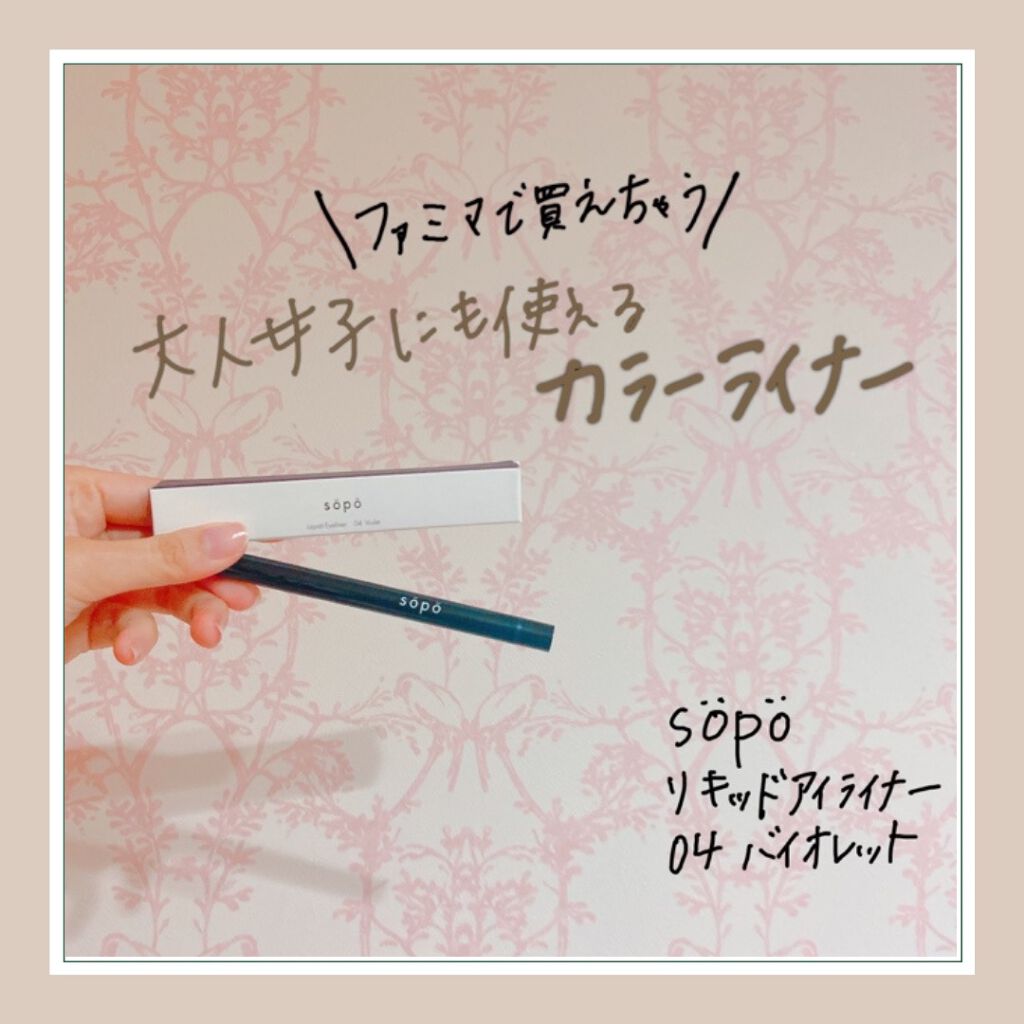 \ファミマで買えちゃう/
大人女子にも使える
カラーライナー
söpö
Liquid Eyeliner 04 Violet
söpö
söpö
リキッドアイライナー
04 バイオレット